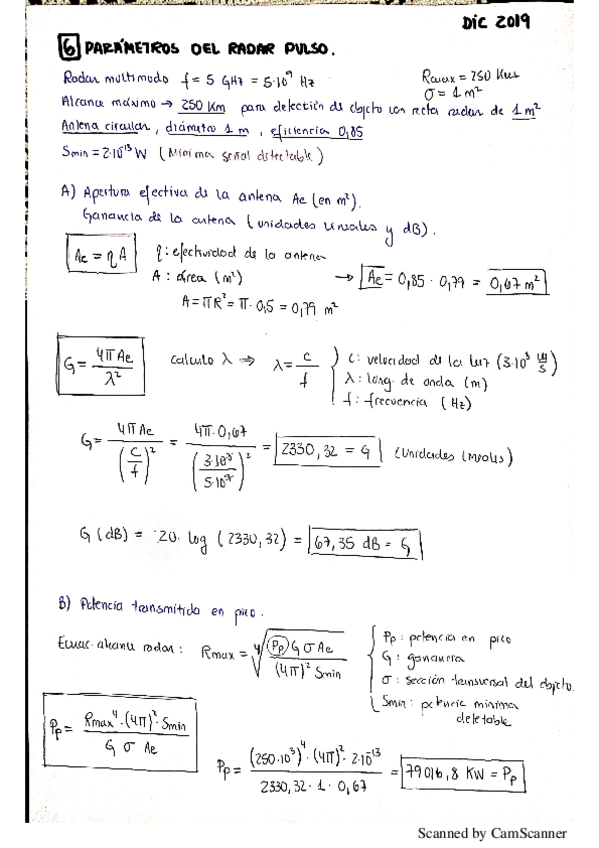 DIC 2019
6 PARÁMETROS DEL RADAR PULSO.
Radar multimodo f = 5 GHz = 5·10⁹ Hz
Rmax = 250 Km
σ = 1 m²
Alcance máximo → 250 Km para detección de objeto con recta radar de 1 m²
Antena circular, diámetro 1 m, eficiencia 0,85
Smin = 2·10⁻¹³ W (Mínima señal detectable)
A) Apertura efectiva de la antena Ae (en m²).
Ganancia de la antena (unidades lineales y dB).
Ae = η A
η : efectividad de la antena
A : área (m²)
→ Ae = 0,85 · 0,79 = 0,67 m²
A = πR² = π · 0,5 = 0,79 m²
G = 4π Ae / λ²
Calculo λ ⇒ λ = c / f
c : velocidad de la luz (3·10⁸ m/s)
λ : long. de onda (m)
f : frecuencia (Hz)
G = 4π Ae / (c/f)² = 4π · 0,67 / (3·10⁸ / 5·10⁹)² = 2330,32 = G (Unidades lineales)
G (dB) = 20 · log (2330,32) = 67,35 dB = G
B) Potencia transmitida en pico.
Ecuac. alcance radar : Rmax = ⁴√(Pp G σ Ae / (4π)² Smin)
Pp : potencia en pico
G : ganancia
σ : sección transversal del objeto.
Smin : potencia mínima
detectable
Pp = Rmax⁴ · (4π)² · Smin / G σ Ae
Pp = (250·10³)⁴ · (4π)² · 2·10⁻¹³ / 2330,32 · 1 · 0,67 = 79016,8 KW = Pp
Scanned by CamScanner